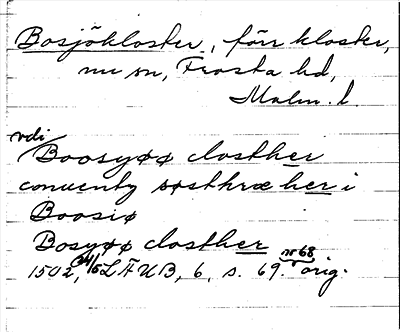 Bosjökloster, förr kloster,
nu sn, Frosta hd,
Malm. l.
vdi
Boosyøø closther
conuenty søsthræ her i
Boosiø
Bosyøø closther
1502, 24/5 LÄUB, 6, s. 69. nr 68 orig.